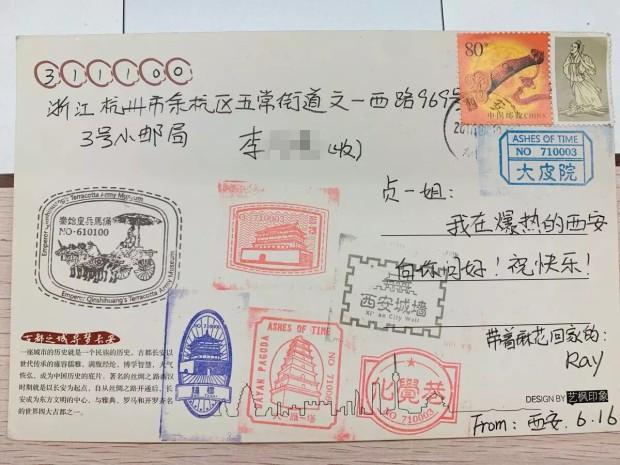 311100
浙江杭州市余杭区五常街道文一西路969号
3号小邮局 李 (收)
80分
中国邮政 CHINA
ASHES OF TIME
NO 710003
大皮院
贞一姐:
我在爆热的西安
向你问好!祝快乐!
带着麻花回家的:
Ray
From: 西安. 6.16
Emperor Qinshihuang's Terracotta Army Museum
秦始皇兵馬俑
NO·610100
Emperor Qinshihuang's Terracotta Army Museum
710003
西安城墙
Xi'an City Wall
ASHES OF TIME
DAYAN PAGODA
NO 71000
大雁塔
化覺巷
NO 710003
古都之城 寻梦长安
一座城市的历史就是一个民族的历史。古都长安以
世代传承的雍容儒雅、满腹经纶、博学智慧、大气
恢弘,成为中国历史的底片。著名的丝绸之路西汉
时期就是以长安为起点。自从丝绸之路开通后,长
安成为东方文明的中心,与雅典、罗马和开罗齐名
的世界四大古都之一。
DESIGN BY 艺枫印象